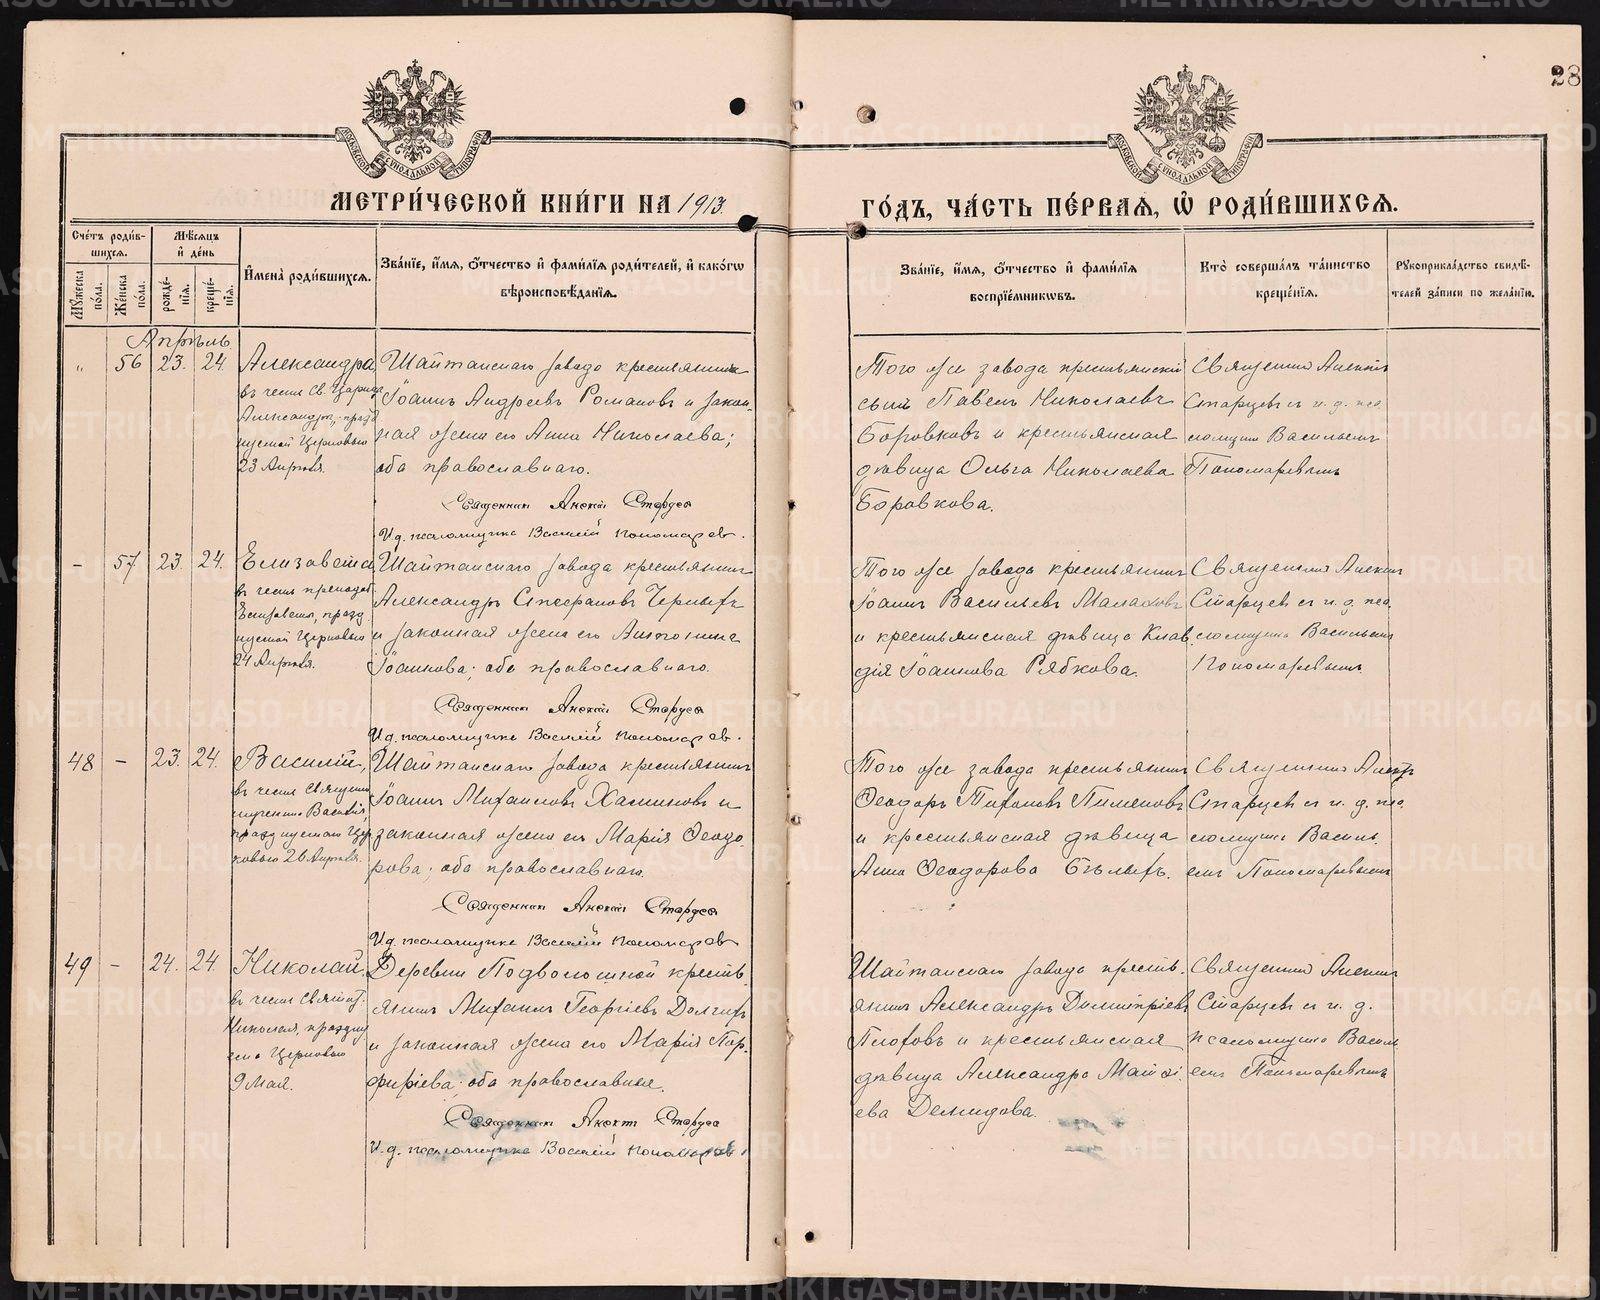 28
МОСКОВСКОЙ СѴНОДАЛЬНОЙ ТИПОГРАФІИ
МОСКОВСКОЙ СѴНОДАЛЬНОЙ ТИПОГРАФІИ
МЕТРИ́ЧЕСКОЙ КНИ́ГИ НА 1913
ГО́ДЪ, ЧА́СТЬ ПЕ́РВАЯ, Ѽ РОДИ́ВШИХСЯ.
Сче́тъ роди́вшихся.
Мꙋ́жеска по́ла.
Же́нска по́ла.
Мѣ́сяцъ и҆ де́нь
рожде́нїѧ.
креще́нїѧ.
И҆мена̀ роди́вшихся.
Зва́нїе, и҆́мѧ, ѻ҆́тчество и҆ фами́лїѧ роди́телей, и҆ како́гѡ
вѣроисповѣ́данїѧ.
Зва́нїе, и҆́мѧ, ѻ҆́тчество и҆ фами́лїѧ
воспрїе́мникѡвъ.
Кто̀ соверша́лъ та́инство
креще́нїѧ.
Рꙋкоприкла́дство свидѣ́-
телей за́писи по жела́нїю.
Апрѣль.
„ 56 23. 24.
Александра,
въ честь Св. Царицы
Александры, празд
нуемой Церковью
23 Апрѣля.
Шайтанскаго завода крестьянинъ
Іоаннъ Андреевъ Романовъ и закон-
ная жена его Анна Николаева;
оба православнаго.
Священник Алексій Старцев
И.д. псаломщика Василій Пономарев.
Того же завода крестьянскій
сынъ Павелъ Николаевъ
Боровковъ и крестьянская
дѣвица Ольга Николаева
Боровкова.
Священникъ Алексій
Старцевъ съ и. д. пса
ломщика Васильемъ
Пономаревымъ
– 57 23. 24.
Елизавета,
въ честь преподоб.
Елизаветы, празд
нуемой Церковью
24 Апрѣля.
Шайтанскаго завода крестьянинъ
Александръ Стефановъ Черныхъ
и законная жена его Антонина
Іоаннова; оба православнаго.
Священник Алексій Старцев
И.д. псаломщика Василій Пономарев.
Того же завода крестьянинъ
Іоаннъ Васильевъ Малаховъ
и крестьянская дѣвица Клав
дія Іоаннова Рябкова.
Священникъ Алексій
Старцевъ съ и. д. пса
ломщика Васильемъ
Пономаревымъ.
48 – 23. 24.
Василій,
въ честь Священно
мученика Василія,
празднуемаго Цер
ковью 26 Апрѣля.
Шайтанскаго завода крестьянинъ
Іоаннъ Михаиловъ Халиковъ и
законная жена его Марія Ѳеодо
рова; оба православнаго.
Священник Алексій Старцев
И.д. псаломщика Василій Пономарев
Того же завода крестьянинъ
Ѳеодоръ Тихоновъ Пименовъ
и крестьянская дѣвица
Анна Ѳеодорова Бѣлыхъ.
Священникъ Алексій
Старцевъ съ и. д. пса
ломщика Василь
емъ Пономаревымъ
49 – 24. 24.
Николай,
въ честь Святит.
Николая, праздну
емаго Церковью
9 Мая.
Деревни Подволошной кресть
янинъ Михаилъ Георгіевъ Долгихъ
и законная жена его Марія Пор-
фиріева; оба православные.
Священник Алексій Старцев
И.д. псаломщика Василій Пономарев
Шайтанскаго завода кресть-
янинъ Александръ Димитріевъ
Плоховъ и крестьянская
дѣвица Александра Матѳ
ева Демидова.
Священникъ Алексій
Старцевъ съ и. д.
псаломщика Васил
емъ Пономаревымъ
METRIKI.GASO-URAL.RU